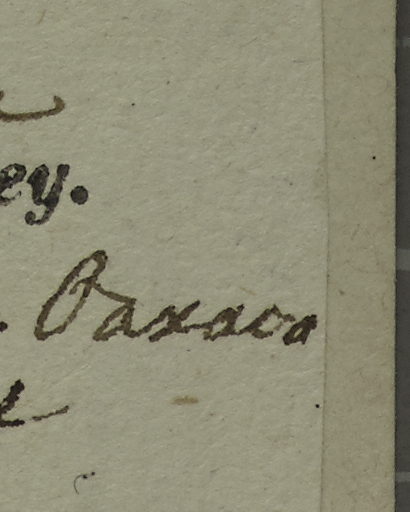 ey.
Oaxaca